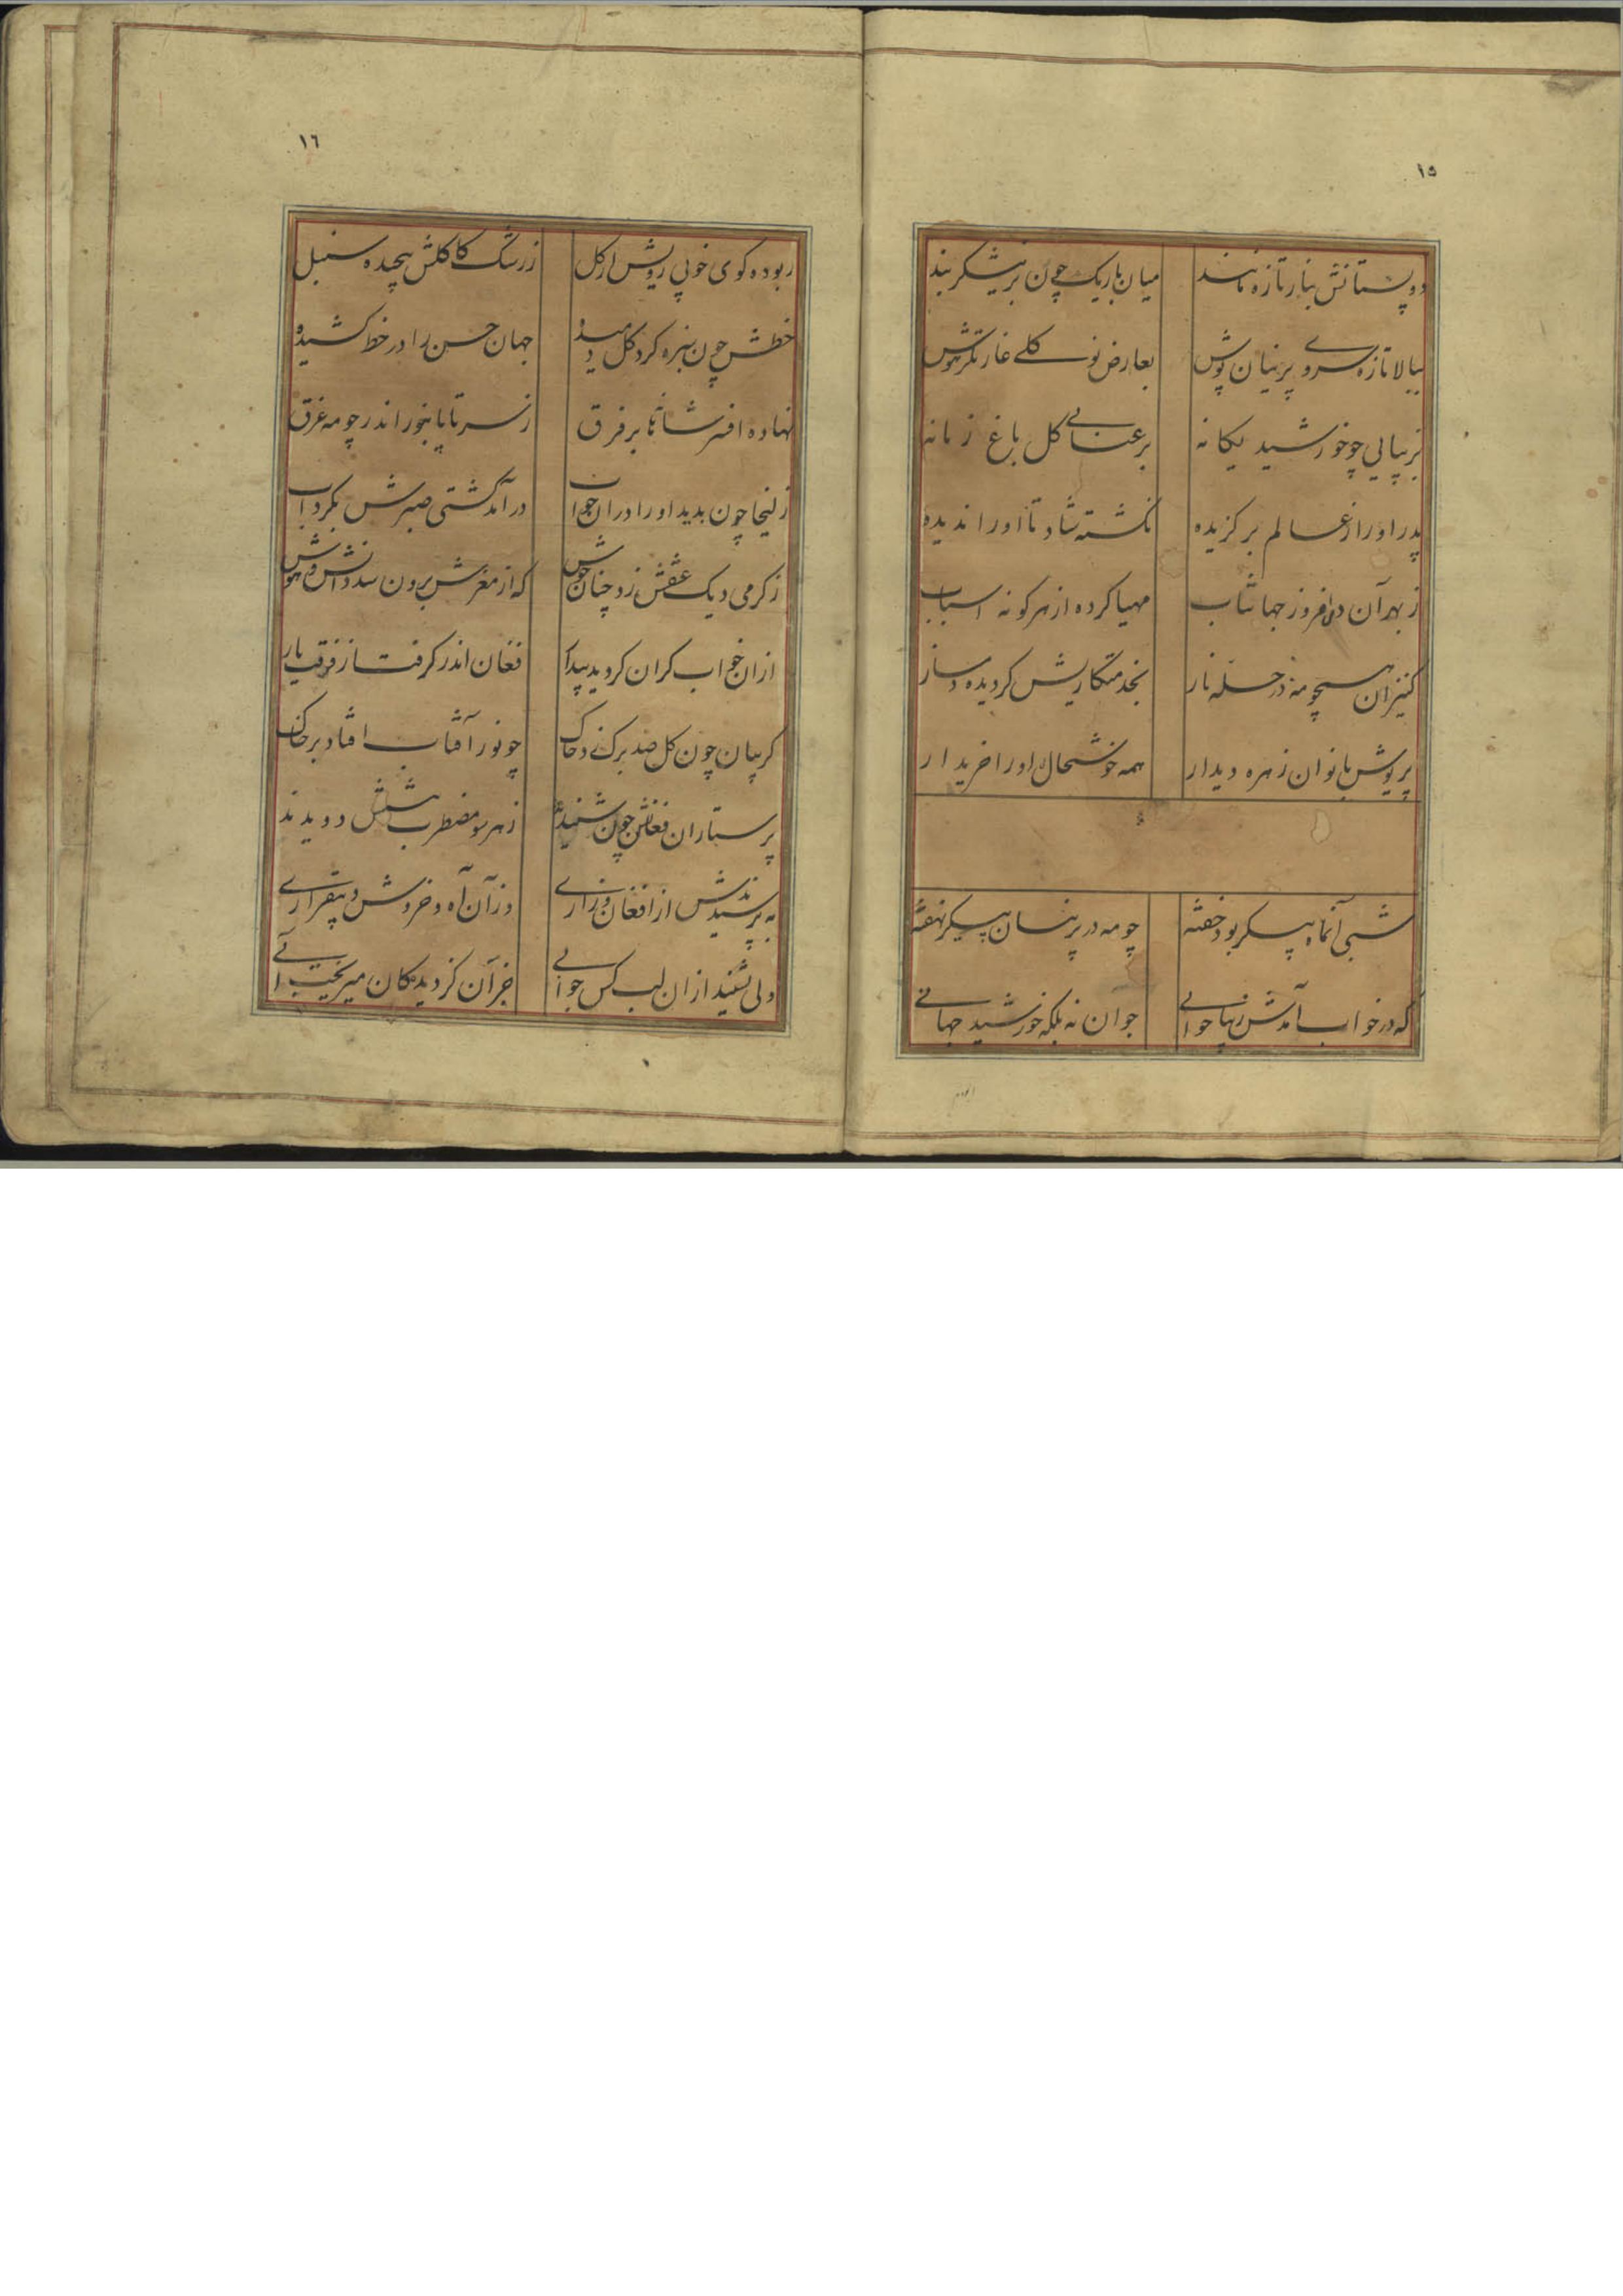 ١٥
دو پستانش بنار تازه مانند
میان باریک چون بر نیشکر بند
ببالا تازه سروے پرنیان پوش
بعارض نو کلے غارتکر هوش
بزیبایی چو خورشید یکانه
برعنایے کل باغ زمانه
پدر او را ز عالم برکزیده
نکشته شاد تا او را ندیده
ز بهر آن دل افروز جهانتاب
مهیا کرده از هر کونه اسباب
کنیزان همچو مه در حله ناز
بخدمتکاریش کردیده دمساز
پریوش بانوان زهره دیدار
همه خوشحال او را خریدار
شبی آنماه پیکر بود خفته
چو مه در پرنیان پیکر نهفته
که در خواب آمدش زیبا جوانے
جوان نه بلکه خورشید جهانے
١٦
ربوده کوی خوبی رویش از کل
ز رشک کاکلش پیچیده سنبل
خطش چون سبزه کرد کل دمیده
جهان حسن را در خط کشیده
نهاده افسر شاهانه بر فرق
ز سر تا پا بنور اندر چو مه غرق
زلیخا چون بدید او را دران خواب
درآمد کشتی صبرش بکرداب
ز کرمی دیک عشقش زد چنان جوش
که از مغزش برون شد دانش و هوش
ازان خواب کران کردید بیدار
فغان اندر کرفت از فرقت یار
کریبان چون کل صد برک زد چاک
چو نور آفتاب افتاد بر خاک
پرستاران فغانش چون شنیدند
ز هر سو مضطرب پیشش دویدند
به پرسیدندش از افغان و زارے
وز آن آه و خروش و بیقرارے
ولی نشنید ازان لب کس جوابے
جز آن کز دیدکان میریخت آبے